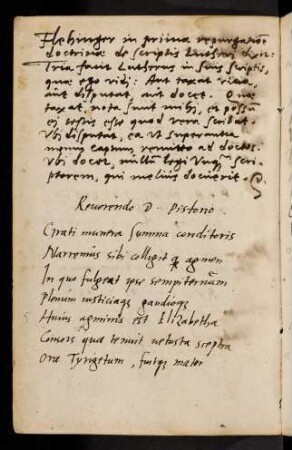 Flehinger in prima repurgatione
doctrinae de scriptis Lutheri dixit:
Tria facit Lutherus in suis scriptis,
quae ego vidi: Aut taxat vitia,
aut disputat, aut docet. Quae
taxat, nota sunt mihi, et possum
ei testis esse quod vera scribat.
Ubi disputat, ea ut superantia
meum captum remitto ad doctos.
Ubi docet, nullum legi unquam scri-
ptorem, qui melius docuerit.
Reverendo D. Pistorio.
Grati munera summa conditoris
Narremus sibi colligit qui agmen
In quo fulgeat ipse sempiternum
Plenum iusticiaque gaudioque
Huius agminis est Elizabetha
Coniunx quae tenuit vetusta sceptra
Orae Tyrigetum, fuitque mater